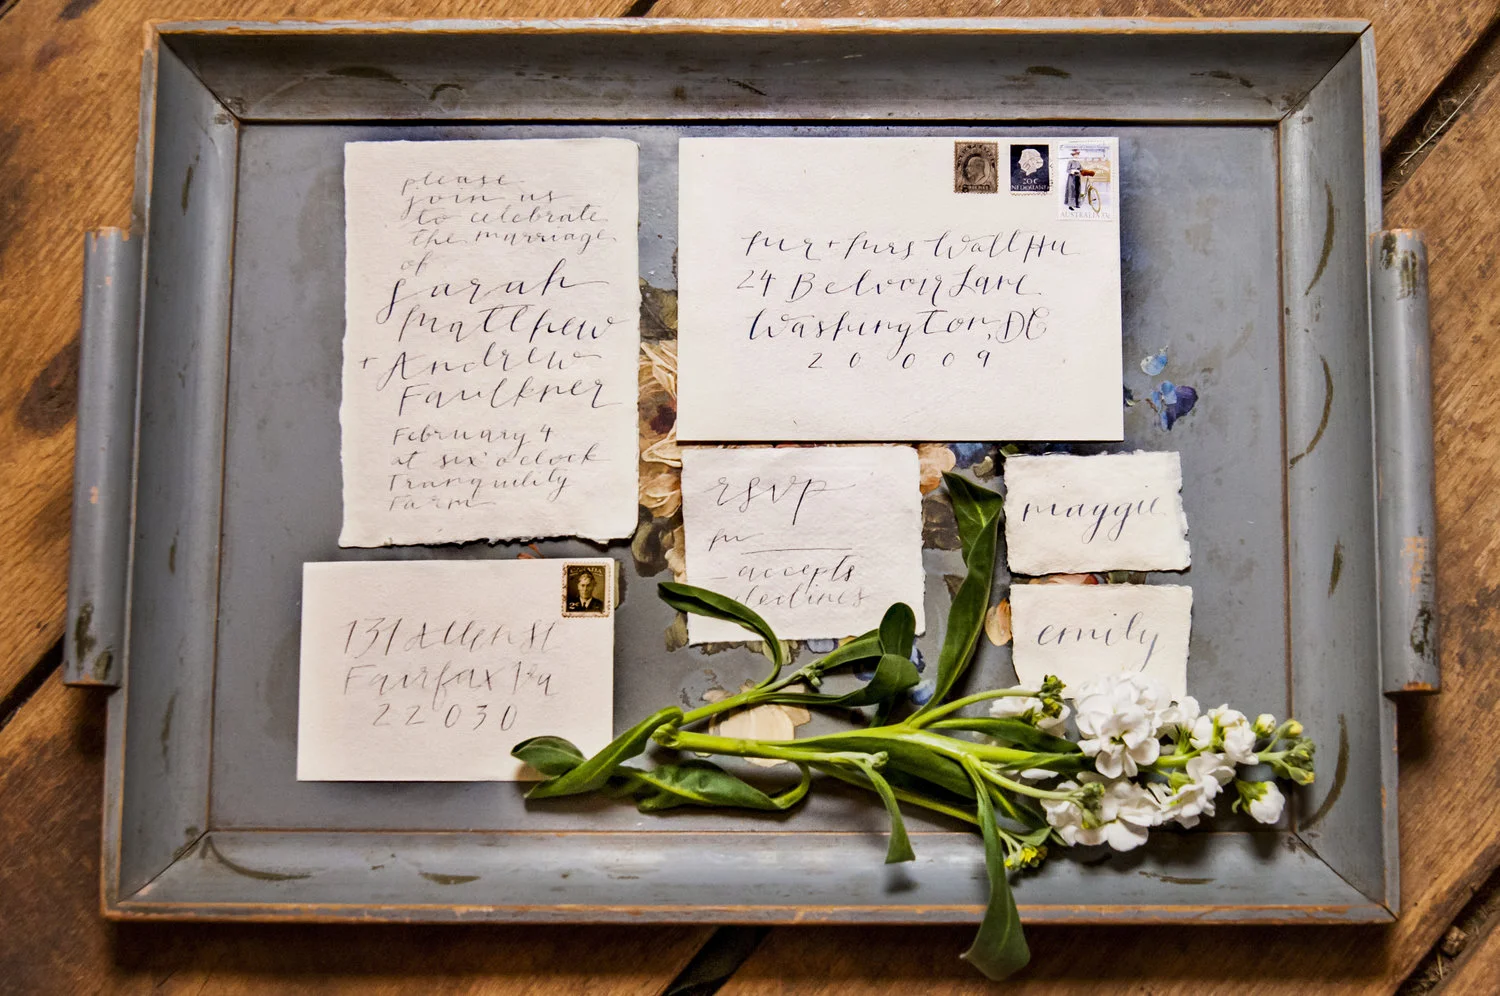 please
join us
to celebrate
the marriage
of
Sarah
Matthew
+ Andrew
Faulkner
February 4
at six o'clock
Tranquility
Farm
Mr + Mrs Wall Hu
24 Belvoir Lane
Washington, DC
20009
20c
NEDERLAND
AUSTRALIA
rsvp
M
accepts
declines
maggie
emily
CANADA
2c
131 Allen St
Fairfax Va
22030